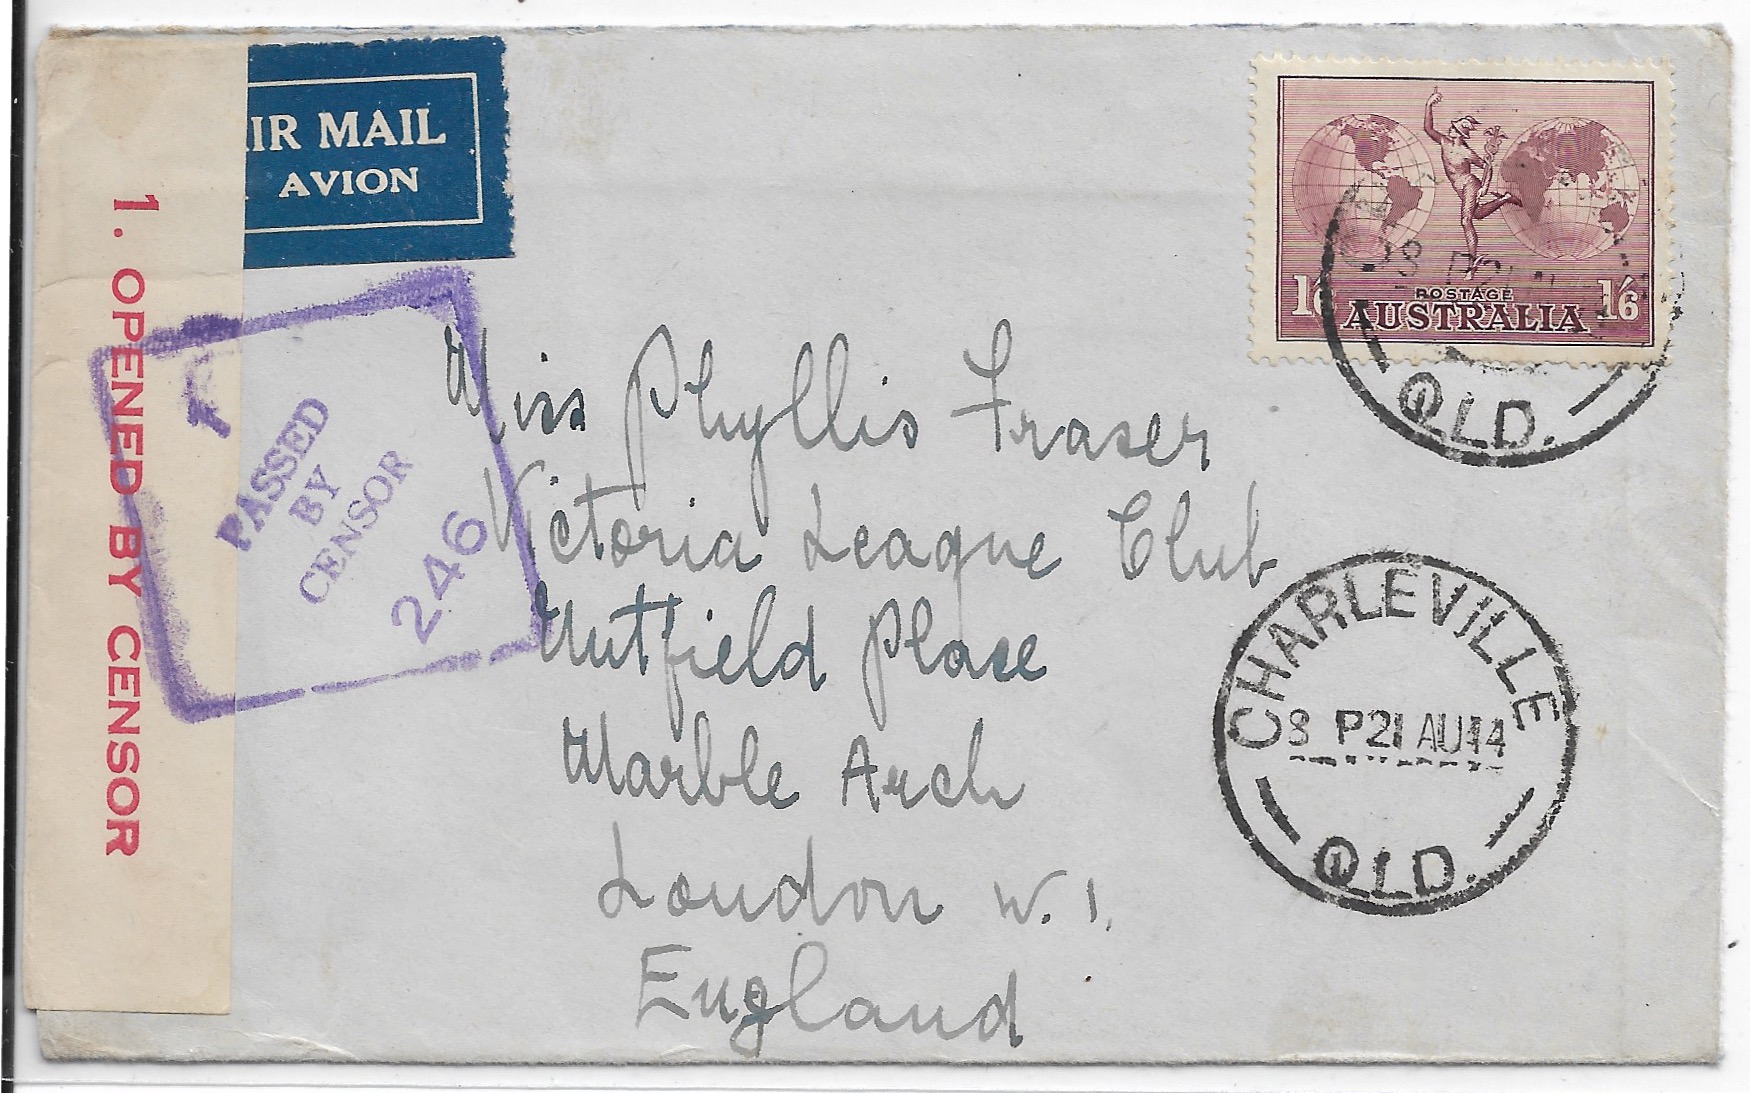 1. OPENED BY CENSOR
IR MAIL
AVION
PASSED
BY
CENSOR
246
1/6 POSTAGE 1/6
AUSTRALIA
QLD.
Miss Phyllis Fraser
Victoria League Club
Nutfield Place
Marble Arch
London W. 1.
England
CHARLEVILLE
8 P21 AU44
QLD.